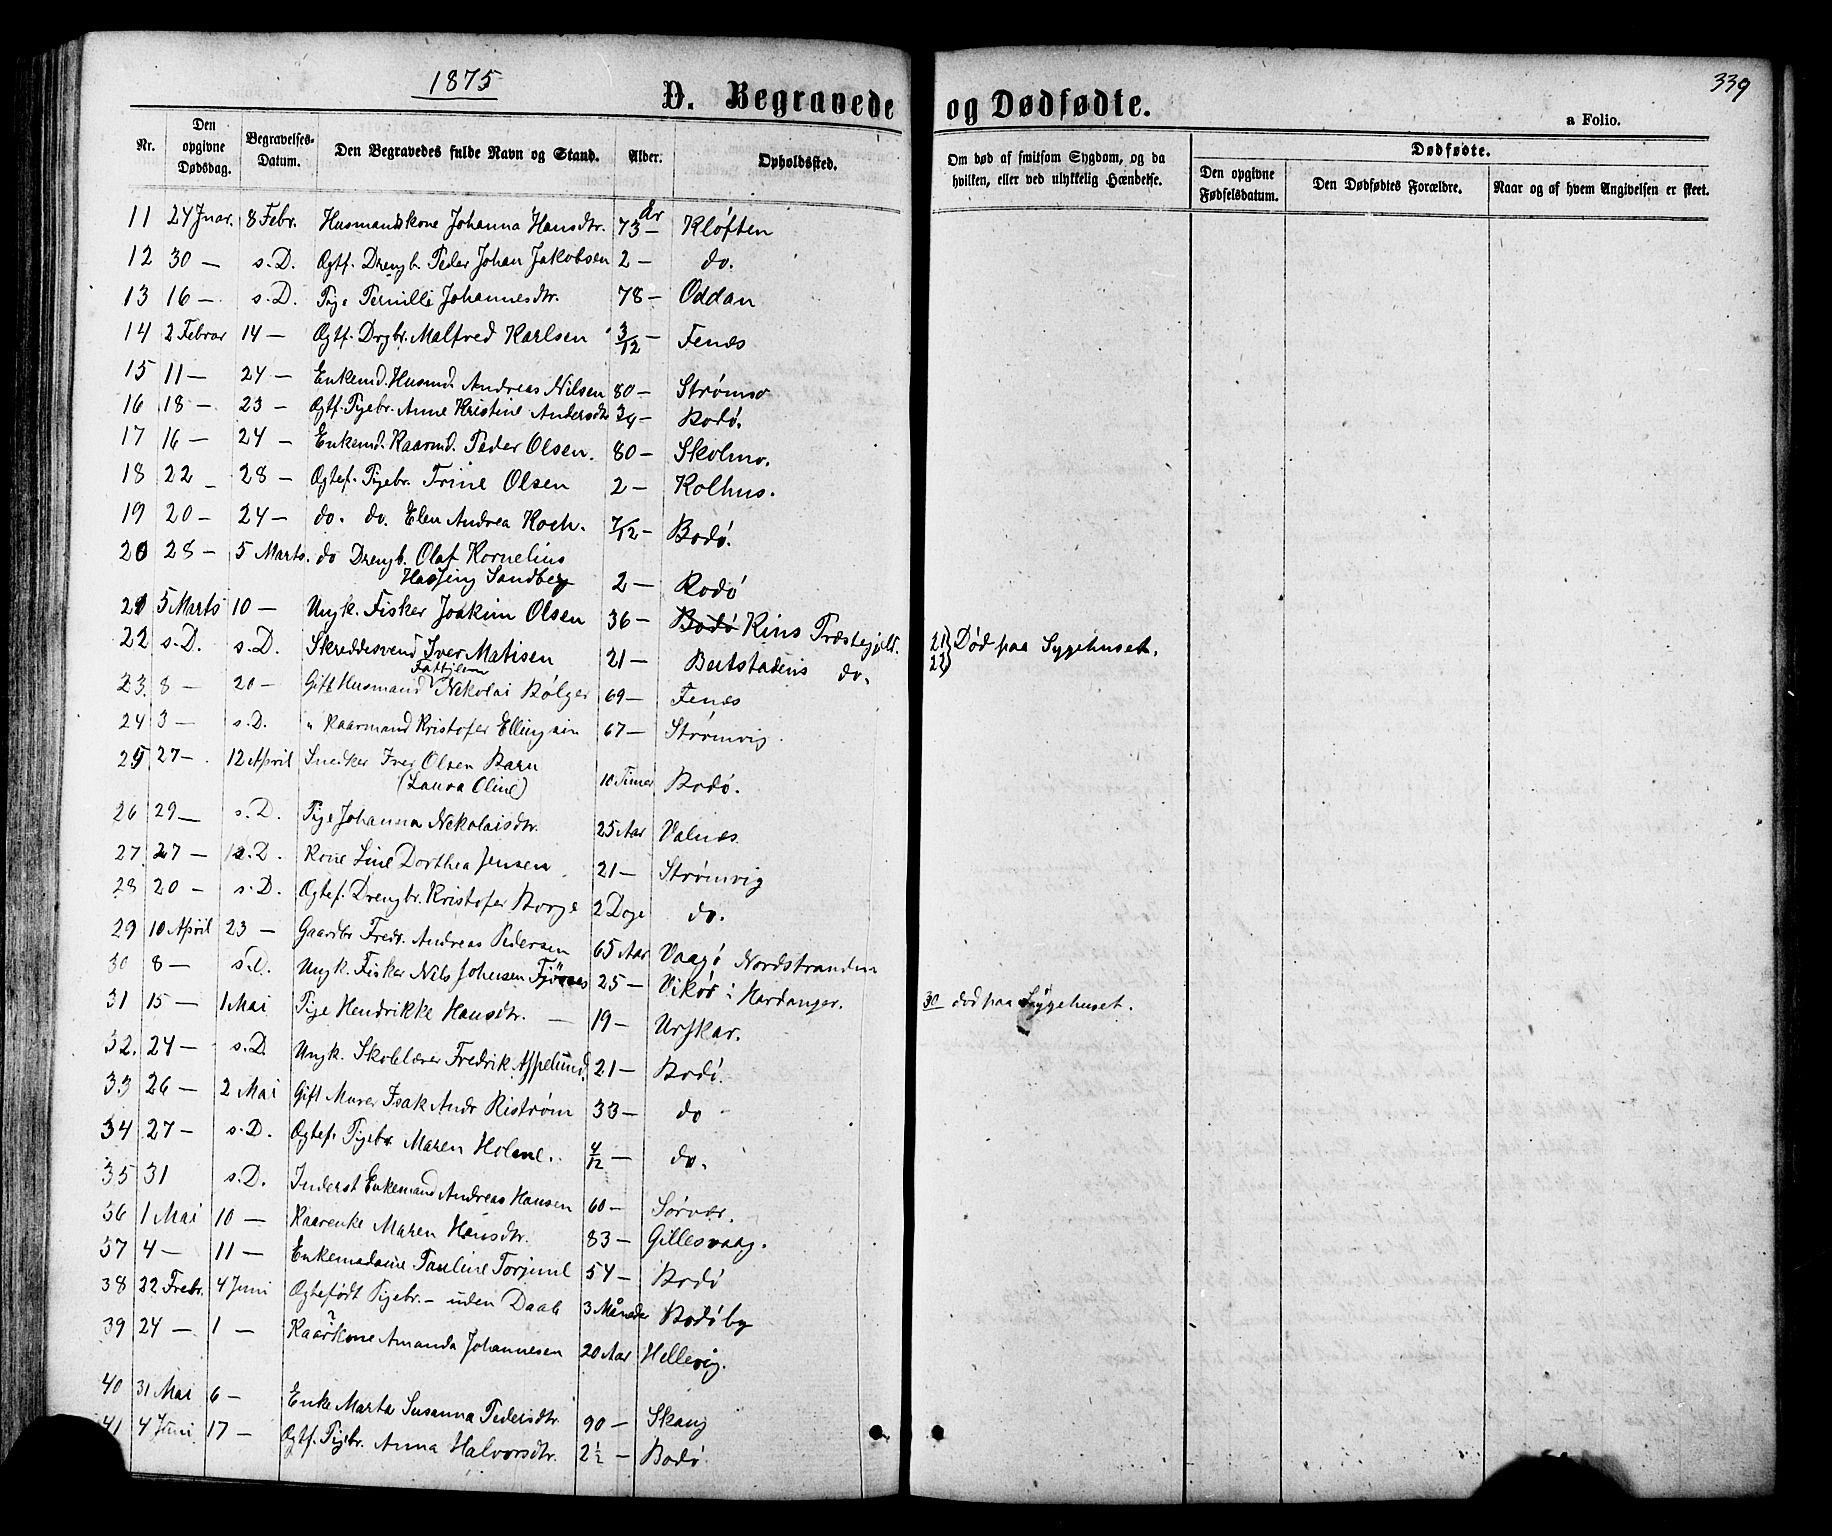 1875
D. Begravede og Dødfødte.
339
a Folio.
Nr. Den opgivne Dødsdag. Begravelses-Datum. Den Begravedes fulde Navn og Stand. Alder. Opholdssted. Om død af smitsom Sygdom, og da hvilken, eller ved ulykkelig Hændelse. Dødfødte. Den opgivne Fødselsdatum. Den Dødfødtes Forældre. Naar og af hvem Angivelsen er skeet.
11 24 Jnar. 8 Febr. Husmandskone Johanna Hansdtr. 73 År — Kløften
12 30 — s.D. Ogtf. Drengb. Peder Johan Jakobsen 2 — do.
13 16 — s.D. Pige Pernille Johannesdtr. 78 — Oddan
14 2 Februar 14 — Ogtf. Drgbr. Malfred Karlsen 3/12 — Fenes
15 11 — 24 — Enkemd. Husmd. Andreas Nilsen 80 — Strømso
16 18 — 23 — Ogtf. Pigebr. Anne Kristine Andersdtr 3/4 — Bodø.
17 16 — 24 — Enkemd. Kaarmd. Peder Olsen. 80 — Skolmo.
18 22 — 28 — Ogtef. Pigebr. Trine Olsen 2 — Kolhus.
19 20 — 24 — do. do. Elen Andrea Koch. 7/12 — Bodø.
20 28 — 5 Marts. do Drengb. Olaf Kornelius
Hassing Sandberg 2 — Rodø
21 5 Marts 10 — Ungk. Fisker Joakim Olsen 36 — Bodø Rins Præstegjeld.
22 s.D. s.D. Skreddesvend Iver Matisen 21 — Beitstadens do. 21) 22) Død paa Sygehuset.
23. 8 — 20 — Gift Husmand Fattiglem Nekolai Bølger 69 — Fenes
24 3 — s.D. " Kaarmand Kristofer Ellingsen 67 — Strømvig
25 27 — 12 April Snedker Iver Olsen Barn
(Laura Oline) 10 Timer Bodø.
26 29 — s.D. Pige Johanna Nekolaisdtr. 25 Aar Valnes
27 27 — s.D. Kone Line Dorthea Jensen 21 — Strømvig
28 20 — s.D. Ogtef. Drengbr. Kristofer Borge 2 Dage do.
29 10 April 23 — Gaardbr Fredr. Andreas Pedersen 65 Aar Vaagø Nordstranden
30 8 — s.D. Ungk. Fisker Nils Johnsen 25 — Vikør i Hardanger. 30 død paa Sygehuset.
31 15 — 1 Mai Pige Hendrikke Hansdtr. — 19 — Urskar.
32. 24 — s.D. Ungk. Skolelærer Fredrik Aspelund. 21 — Bodø.
33 26 — 2 Mai Gift Murer Isak Andr Ristrøm 33 — do
34 27 — s.D. Ogtef. Pigebr Maren Holme. 4/12 — do.
35 31 s.D. Inderst Enkemand Andreas Hansen 60 — Sørvær.
36 1 Mai 10 — Kaarenke Maren Hansdtr. 83 — Gillesvaag.
37 4 — 11 — Enkemadame Pauline Torjusul 54 — Bodø
38 22 Febr. 4 Juni Ogtefødt Pigebr. — uden Daab 3 Måneder Bodøby
39 24 — 1 — Kaarkone Amanda Johannesen 20 Aar Hellevig.
40 31 Mai 6 — Enke Marta Susanna Pedersdtr. 90 — Skaug
41 4 Juni 17 — Ogtf. Pigebr. Anna Halvorsdtr. 2 1/2 — Bodø.